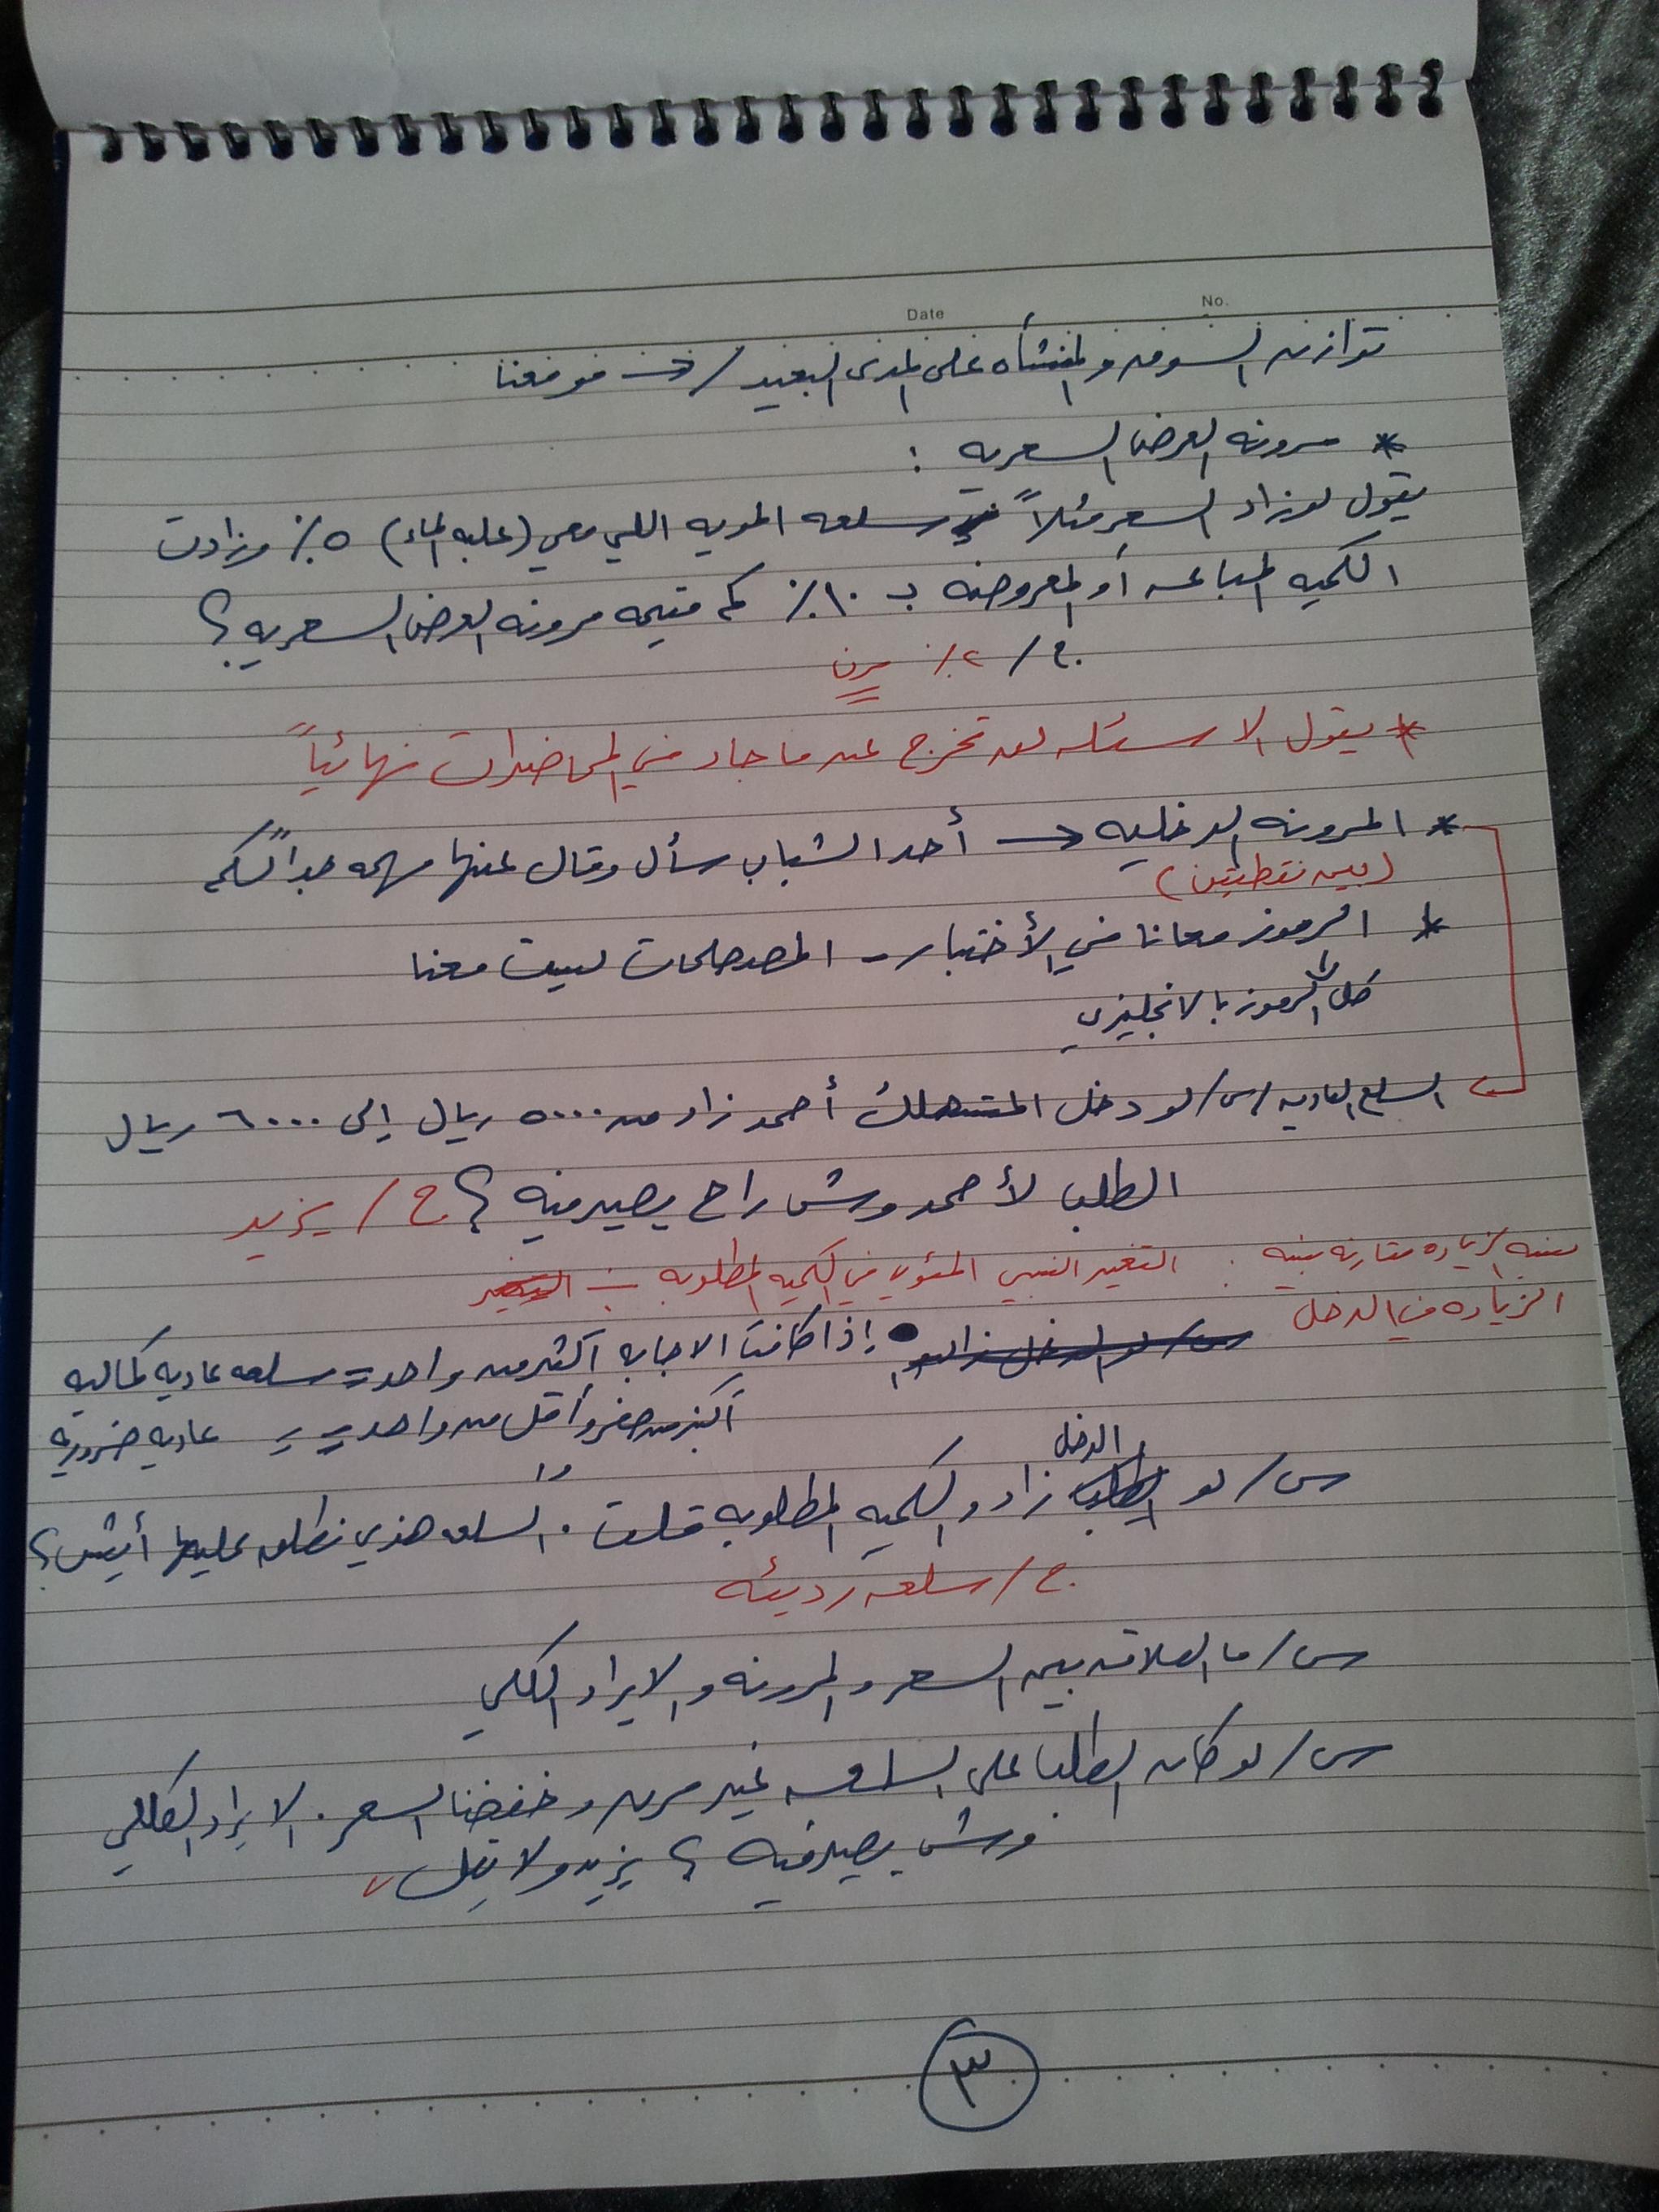 No.
Date
توازن السوق والمنشأه على المدى البعيد / → مو معنا
* مرونه العرض السعريه :
يقول لو زاد السعر مثلاً سلعه المويه اللي معي (علبه الماء) ٥٪ وزادت
الكميه المباعه أو المعروضه بـ ١٠٪ كم قيمه مرونه العرض السعريه ؟
ج / ٢٪ مرن
* يقول الاسئله لن تخرج عن ما جاء في المحاضرات نهائياً
* المرونه الدخليه → أحد الشباب سأل وقال عنها مهمه جداً لكم
(بين نقطتين)
* الرموز معانا في الأختبار - المصطلحات ليست معنا
كل الرموز بالانجليزي
السلع العاديه / س / لو دخل المستهلك أحمد زاد من ٥٠٠٠ ريال إلى ٦٠٠٠ ريال
الطلب لأحمد وش راح يصير فيه ؟ ج / يزيد
نسبه الزياده مقارنه بنسبه : التغير النسبي المئوي في الكميه المطلوبه ÷
الزياده في الدخل
• إذا كانت الاجابه أكثر من واحد = سلعه عاديه كماليه
أكبر من صفر وأقل من واحد = عاديه ضروريه
س / لو الدخل زاد والكميه المطلوبه قلت . السلعه هذي نطلق عليها أيش ؟
ج / سلعه رديئه
س / ما العلاقه بين السعر والمرونه والايراد الكلي
س / لو كان الطلب على السلعه غير مرن وخفضنا السعر . الايراد الكلي
وش يصير فيه ؟ يزيد ولا يقل
٣